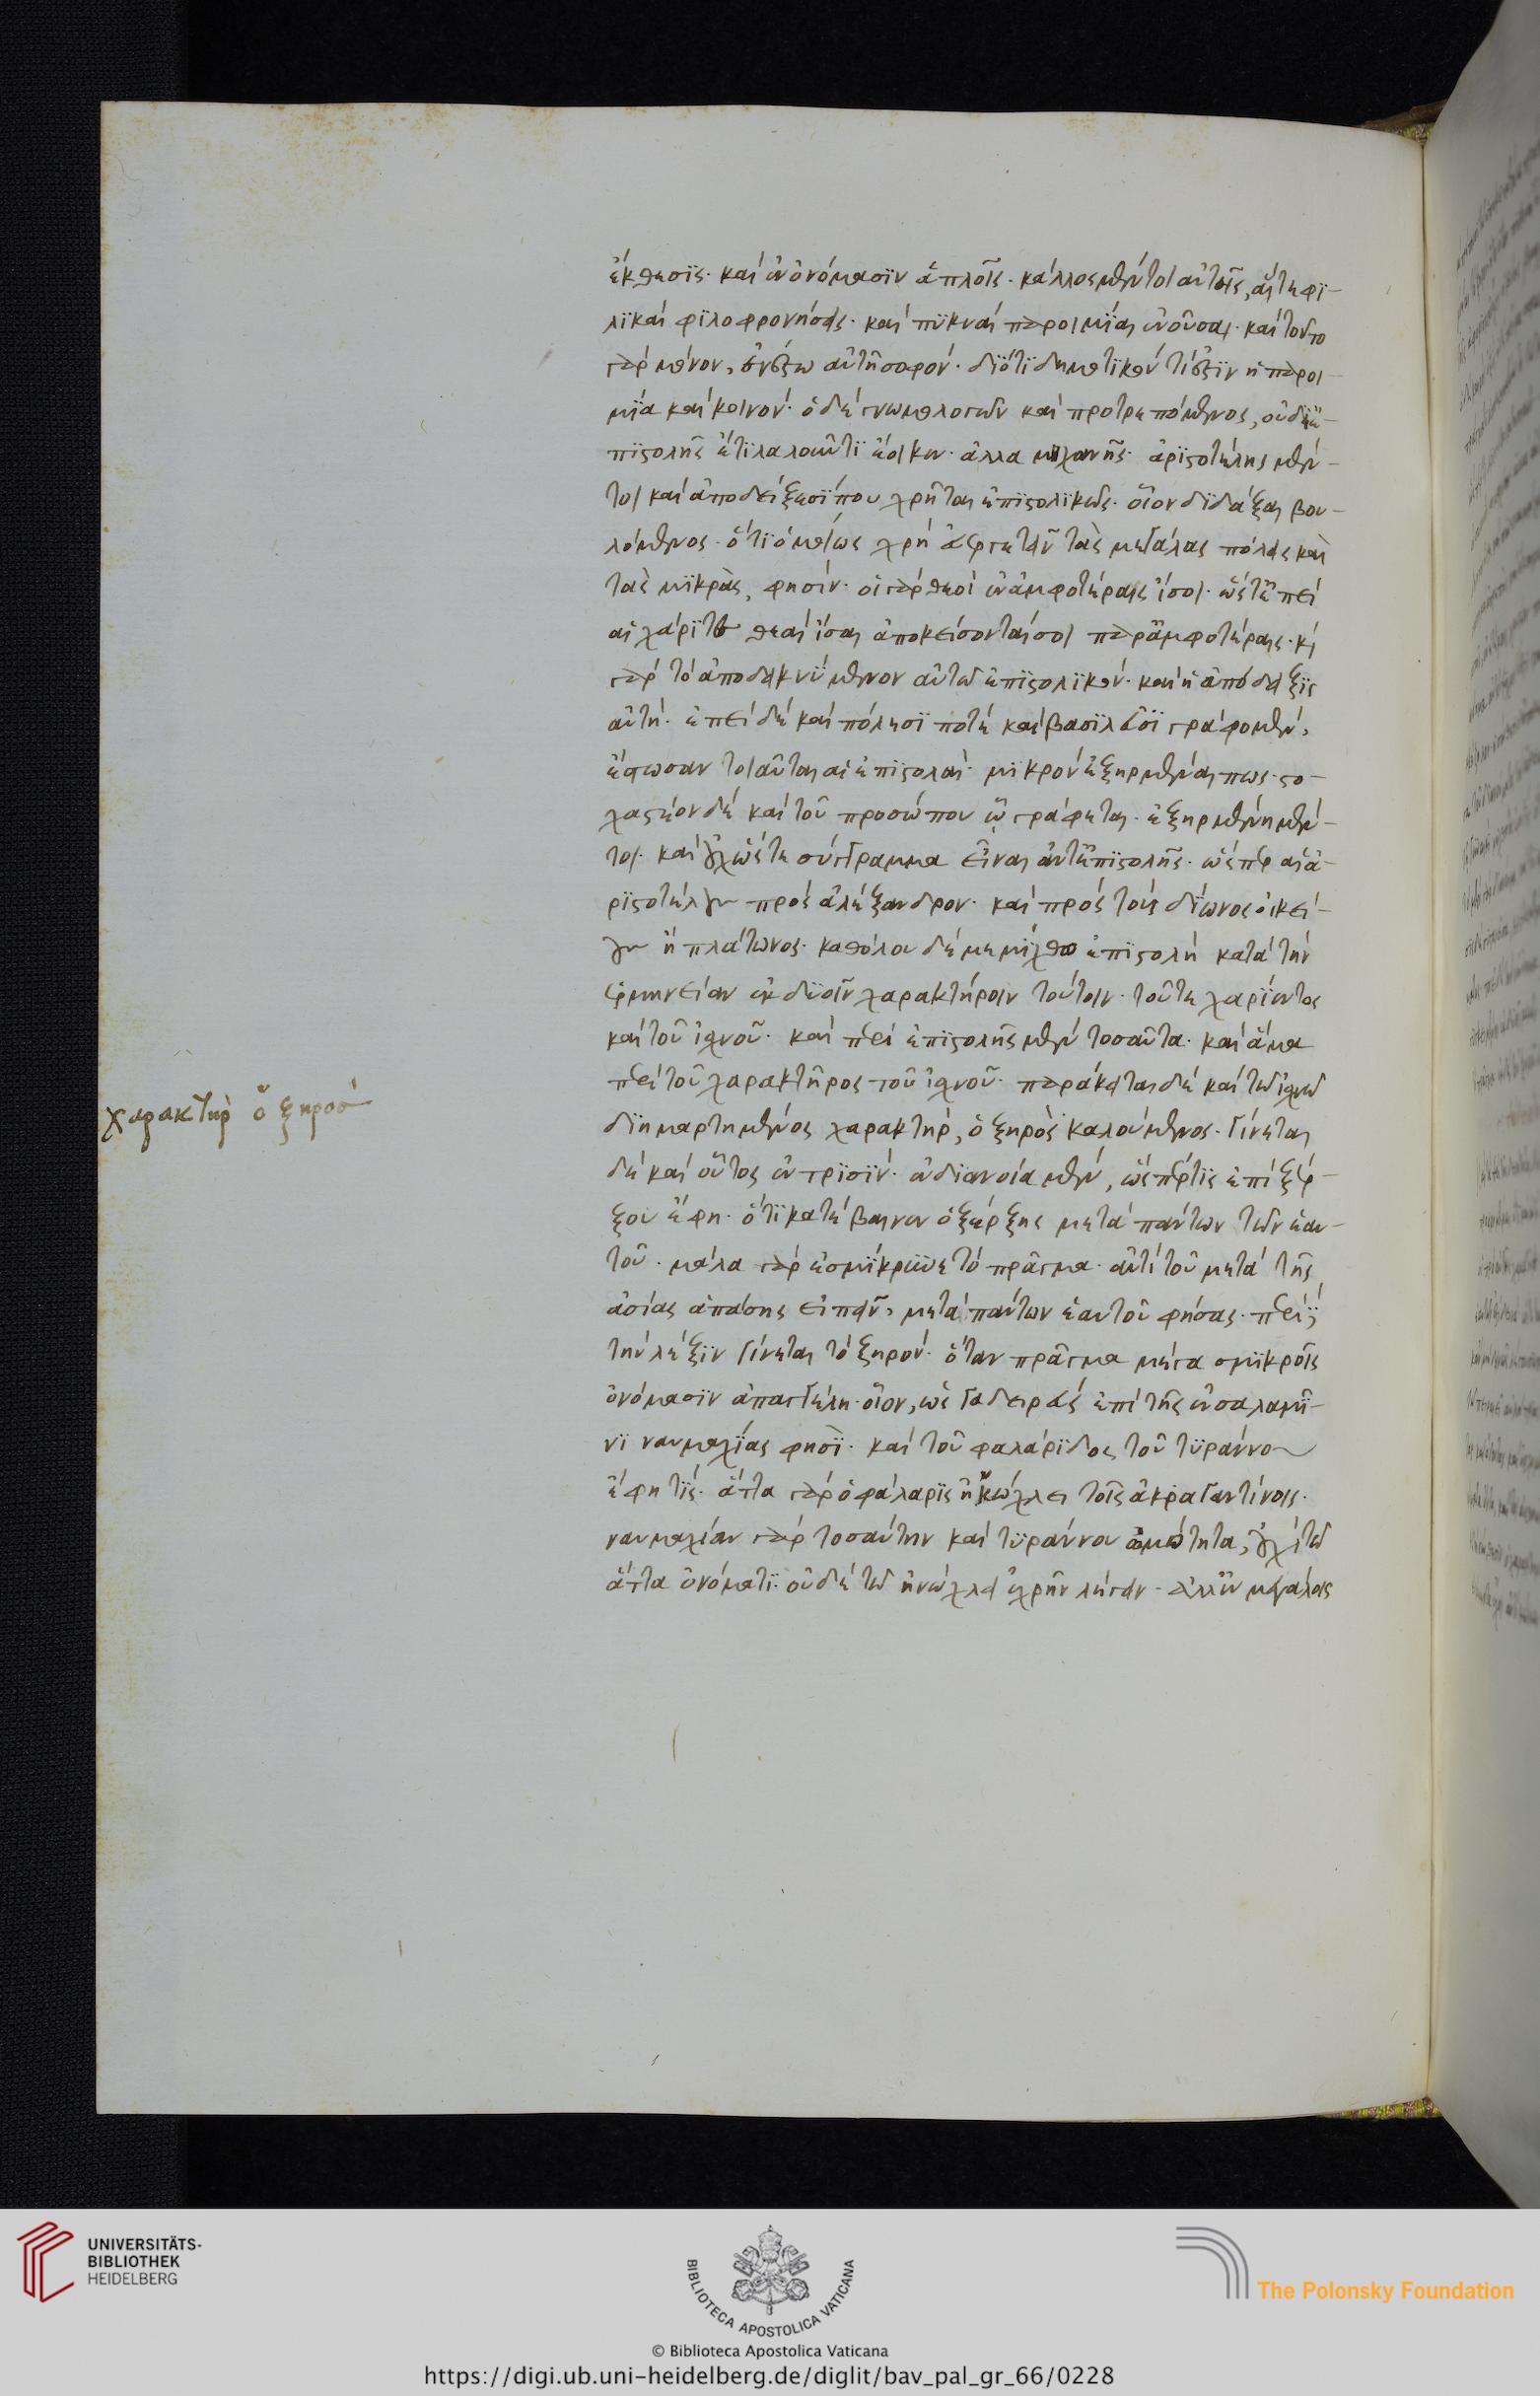 ἔκθεσις· καὶ ἐν ὀνόμασιν ἁπλοῖς· κάλλος μέντοι αὐτῆς, αἵτε φι-
λικαὶ φιλοφρονήσεις· καὶ πυκναὶ παροιμίαι ἐνοῦσαι· καὶ τοῦτο
γὰρ μόνον, ἐνέστω αὐτῇ σοφόν· διότι δημοτικόν τί ἐστιν ἡ παροι-
μία καὶ κοινόν· ὁ δὲ γνωμολογῶν καὶ προτρεπόμενος, οὐ δι' ἐ-
πιστολῆς ἔτι λαλοῦντι ἔοικεν· ἀλλὰ μηχανῆς· ἀριστοτέλης μέν-
τοι καὶ ἀποδείξεσί που χρῆται ἐπιστολικῶς· οἷον διδάξαι βου-
λόμενος· ὅτι ὁμοίως χρὴ εὐεργετεῖν τὰς μεγάλας πόλεις καὶ
τὰς μικράς, φησίν· οἱ γὰρ θεοὶ ἐν ἀμφοτέραις ἴσοι· ὥστ' ἐπεὶ
αἱ χάριτες θεαὶ ἴσαι ἀποκείσονταί σοι παρ' ἀμφοτέραις· καὶ
γὰρ τὸ ἀποδεικνύμενον αὐτῶ ἐπιστολικόν· καὶ ἡ ἀπόδειξις
αὐτή· ἐπεὶ δὲ καὶ πόλεσί ποτε καὶ βασιλεῦσι γράφομεν,
ἔστωσαν τοιαῦται αἱ ἐπιστολαὶ μικρὸν ἐξηρμέναι πως· στο-
χαστέον δὲ καὶ τοῦ προσώπου ᾧ γράφεται· ἐξηρμένη μέν-
τοι· καὶ οὐχ ὥστε σύγγραμμα εἶναι ἀντ' ἐπιστολῆς· ὥσπερ αἱ ἀ-
ριστοτέλους πρὸς ἀλέξανδρον· καὶ πρὸς τοὺς δίωνος οἰκεί-
ους ἡ πλάτωνος· καθόλου δὲ μεμίχθω ἐπιστολὴ κατὰ τὴν
ἑρμηνείαν ἐκ δυοῖν χαρακτήροιν τούτοιν· τοῦ τε χαρίεντος
καὶ τοῦ ἰσχνοῦ· καὶ περὶ ἐπιστολῆς μὲν τοσαῦτα· καὶ ἅμα
περὶ τοῦ χαρακτῆρος τοῦ ἰσχνοῦ· παράκειται δὲ καὶ τῶ ἰσχνῶ
διημαρτημένος χαρακτήρ, ὁ ξηρὸς καλούμενος· γίνεται
δὲ καὶ οὗτος ἐν τρισίν· ἐν διανοίᾳ μέν, ὥσπερ τις ἐπὶ ξέρ-
ξου ἔφη· ὅτι κατέβαινεν ὁ ξέρξης μετὰ πάντων τῶν ἑαυ-
τοῦ· μάλα γὰρ ἐσμίκρυνε τὸ πρᾶγμα· ἀντὶ τοῦ μετὰ τῆς
ἀσίας ἁπάσης εἰπεῖν, μετὰ πάντων ἑαυτοῦ φήσας· περὶ
τὴν λέξιν γίνεται τὸ ξηρόν· ὅταν πρᾶγμα μέγα σμικροῖς
ὀνόμασιν ἀπαγγέλη· οἷον, ὡς γαδειρεὺς ἐπὶ τῆς ἐν σαλαμῖ-
νι ναυμαχίας φησί· καὶ τοῦ φαλάριδος τοῦ τυράννου
ἔφη τίς· ἄττα γὰρ ὁ φάλαρις ἠνώχλει τοῖς ἀκραγαντίνοις·
ναυμαχίαν γὰρ τοσαύτην καὶ τυράννου ὠμότητα, οὐχὶ τῶ
ἄττα ὀνόματι· οὐδὲ τῶ ἠνώχλει ἐχρῆν λέγειν· ἀλλ' ἐν μεγάλοις
χαρακτὴρ ὁ ξηρόσ
UNIVERSITÄTS-
BIBLIOTHEK
HEIDELBERG
BIBLIOTECA APOSTOLICA VATICANA
© Biblioteca Apostolica Vaticana
The Polonsky Foundation
https://digi.ub.uni-heidelberg.de/diglit/bav_pal_gr_66/0228